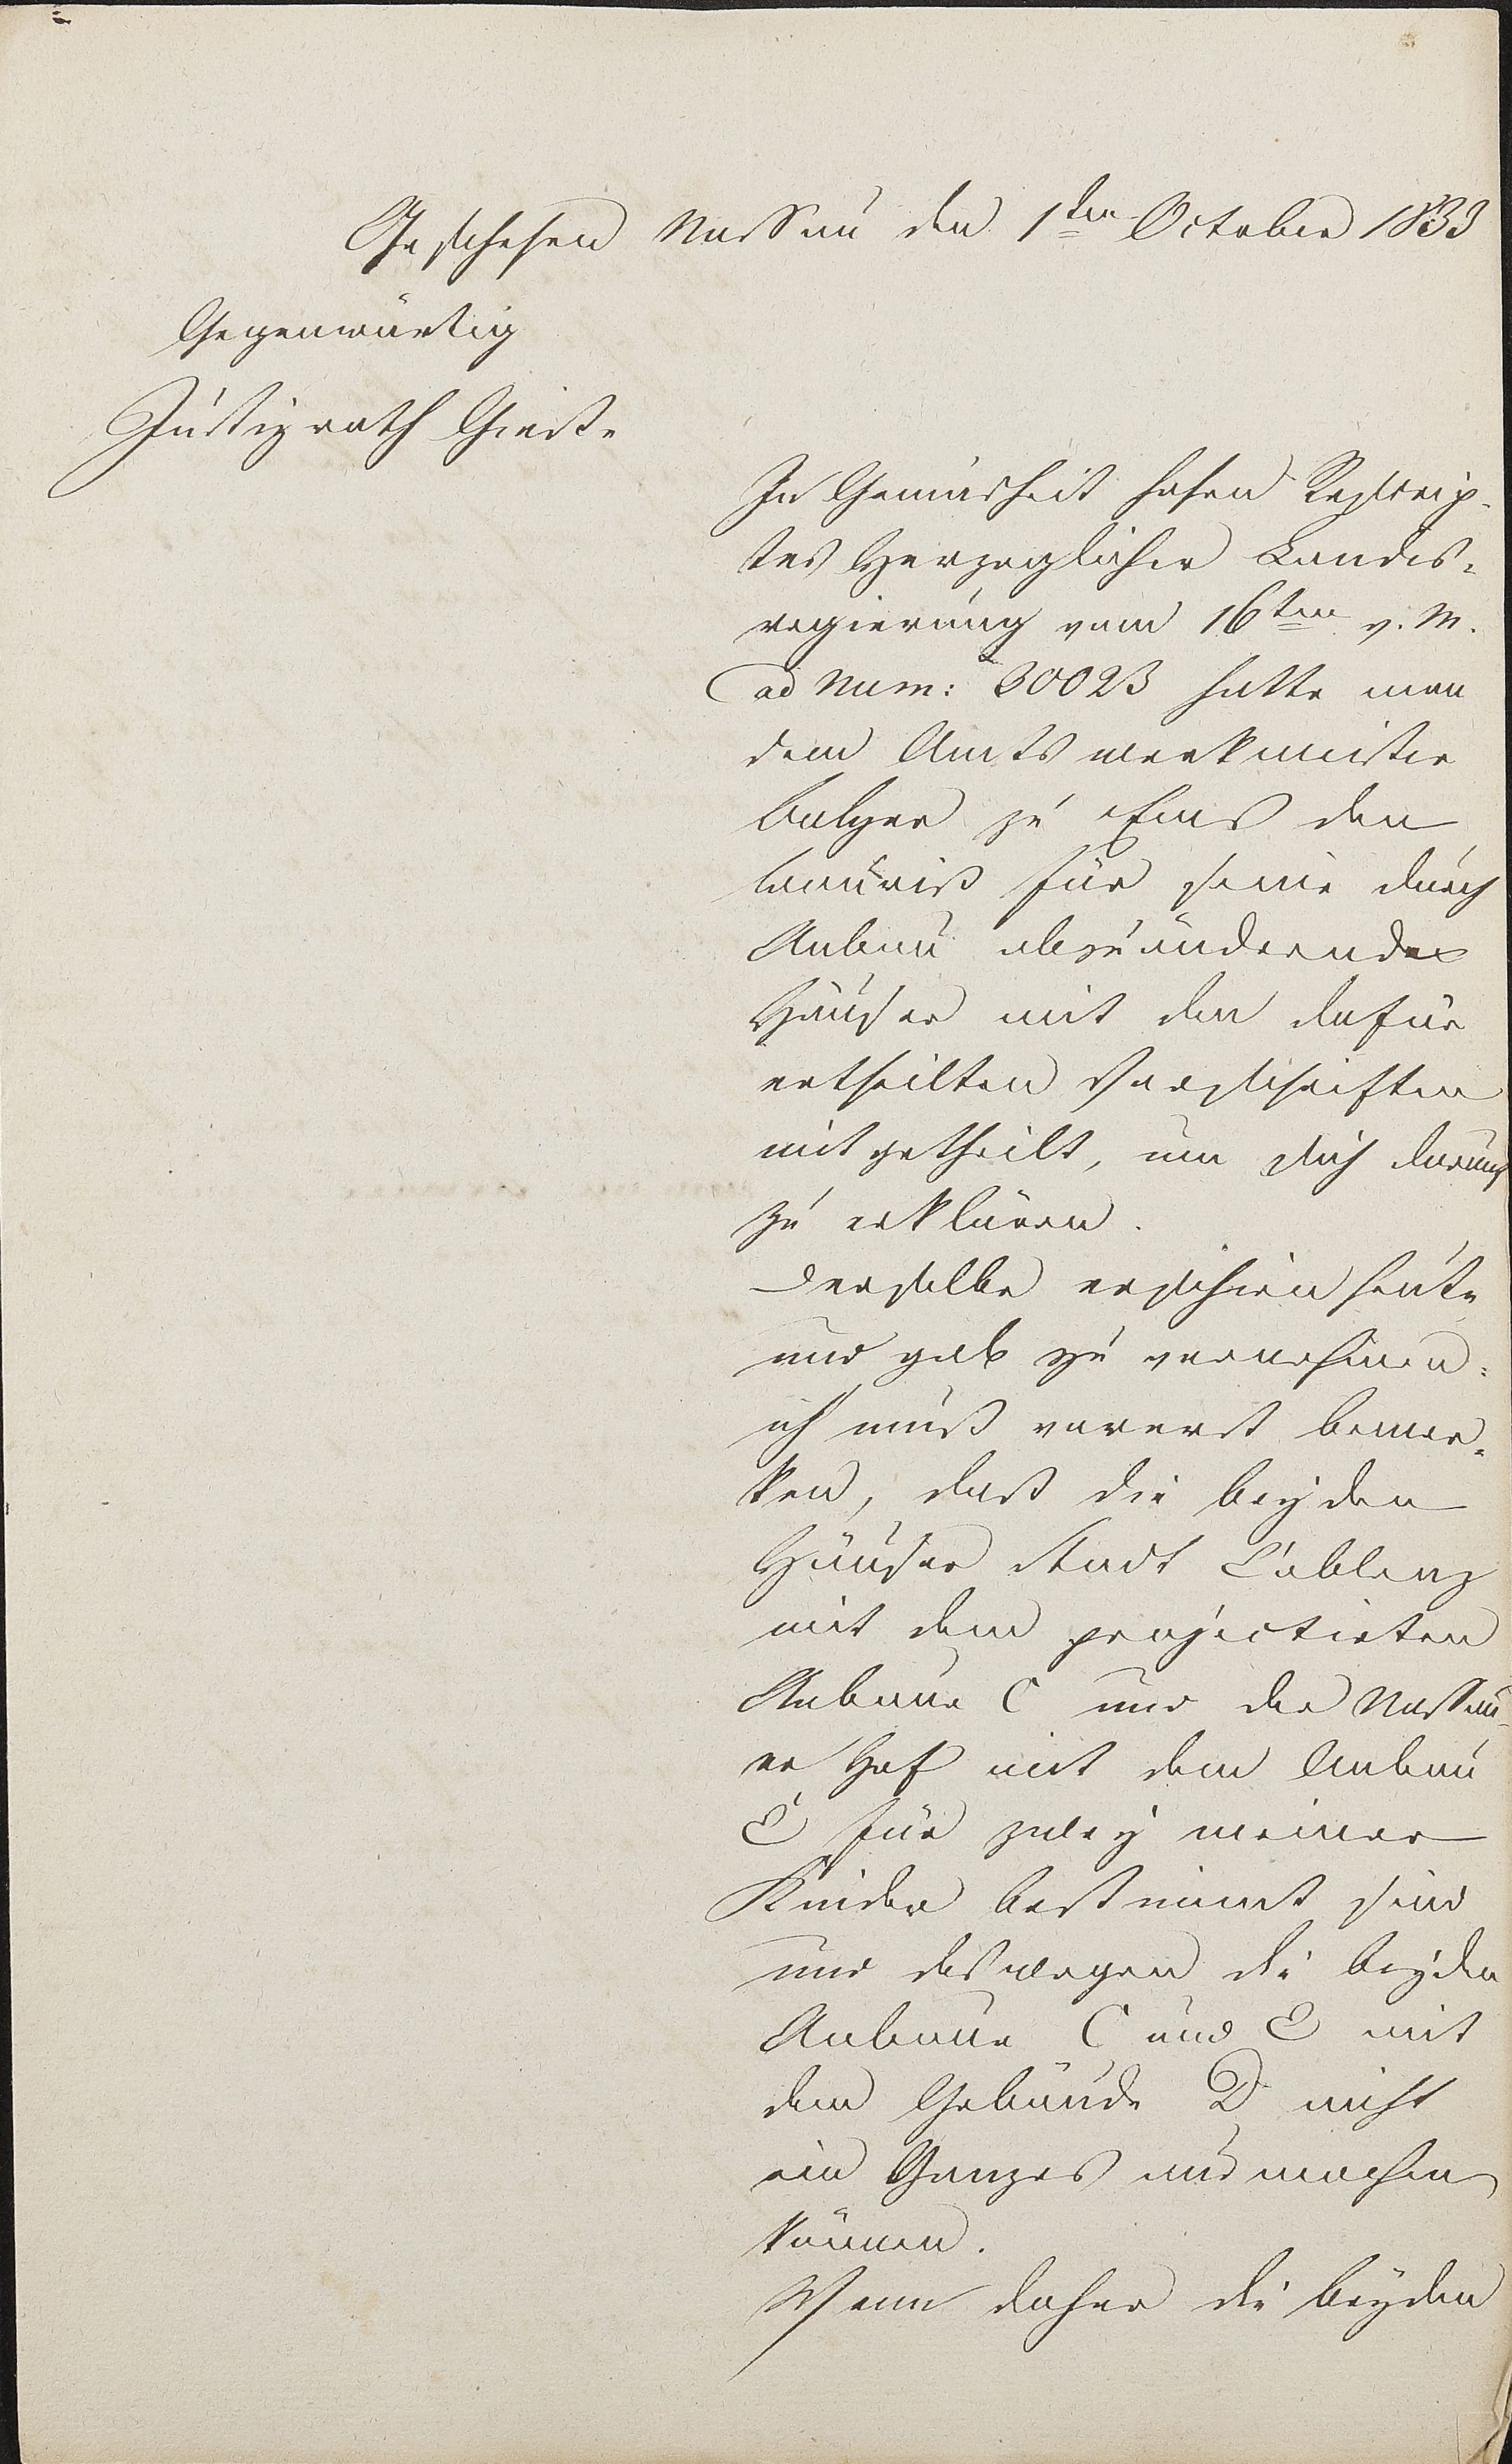 Geschehen Nassau den 1ten October 1833
Gegenwärtig
Justizrath Geiße
In Gemäsheit hohen Rescrip-
tes Herzoglicher Landes-
regierung vom 16ten v. M.
ad Num: 30023 hatte man
dem Amtswerkmeister
Balzer zu Ems den
Bauriß für seine durch
Anbau abzuändernde
Häuser mit den dafür
ertheilten Vorschriften
mitgetheilt, um sich darauf
zu erklären.
Derselbe erschien heute
und gab zu vernehmen:
ich muß vorerst bemer-
ken, daß die beyden
Häuser Stadt Coblenz
mit dem projectirten
Anbaue C und der Nassau-
er Hof mit dem Anbau
E für zwey meiner
Kinder bestimmt sind
und deswegen die beyden
Anbaue C und E mit
dem Gebäude D nicht
ein Ganzes ausmachen
können.
Wenn daher die beyden